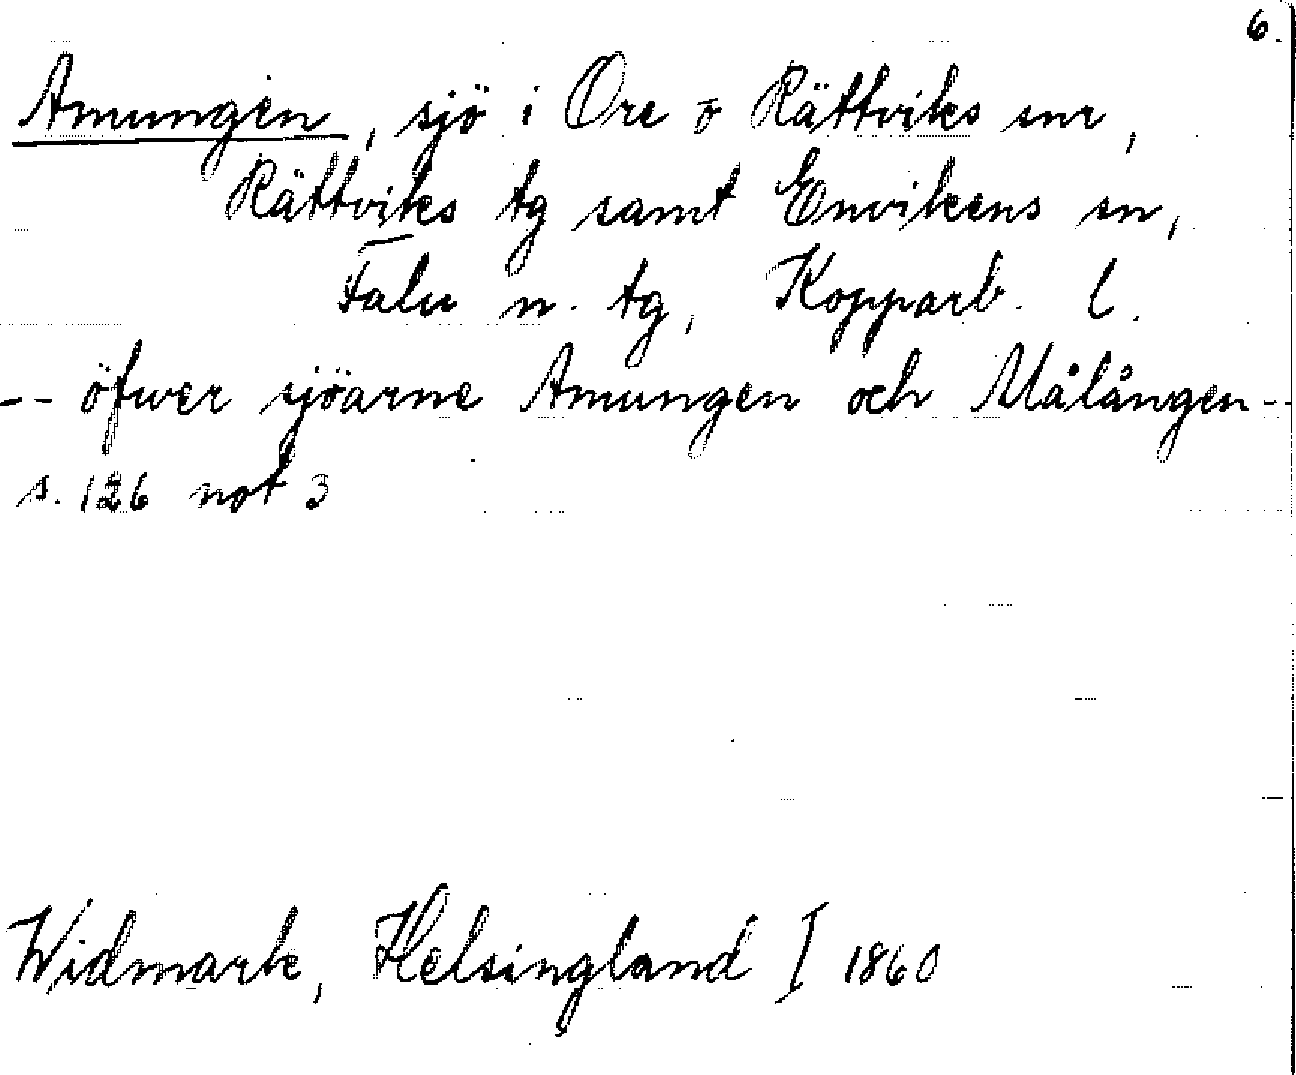 6.
Amungen, sjö i Ore o Rättviks snr,
Rättviks tg samt Envikens sn,
Falu n. tg, Kopparb. l.
-- öfwer sjöarne Amungen och Målången --
s. 126 not 3
Widmark, Helsingland I 1860